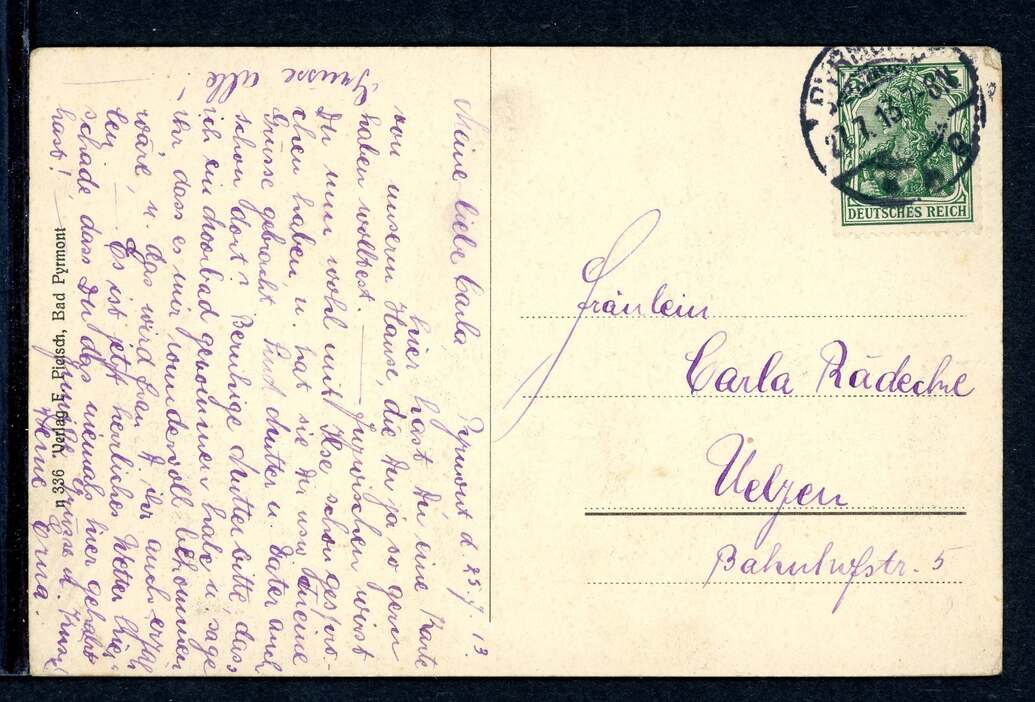 Pyrmont d. 25.7.13
Meine liebe Carla,
hier hast Du eine Karte
von unserm Hause, die Du ja so gern
haben wolltest. — Inzwischen wirst
Du nun wohl mit Ilse schon gespro-
chen haben, u. hat sie Dir unsre
Grüsse gebracht. Sind Mutter u. Vater auch
schon dort? Beruhige Mutter bitte, dass
ich ein Moorbad genommen habe u. sage
ihr dass es mir wundervoll bekommen
wäre, u. das wird Frau D. ihr auch erzäh
len. — Es ist jetzt herrliches Wetter hier,
schade, dass Du das niemals hier gehabt
hast! —
Grüsse alle
Deine Erna.
n 336 Verlag E. Pietsch, Bad Pyrmont
PYRMONT
27.7.13. 7-8N.
DEUTSCHES REICH
Fräulein
Carla Rädecke
Uelzen
Bahnhofstr. 5